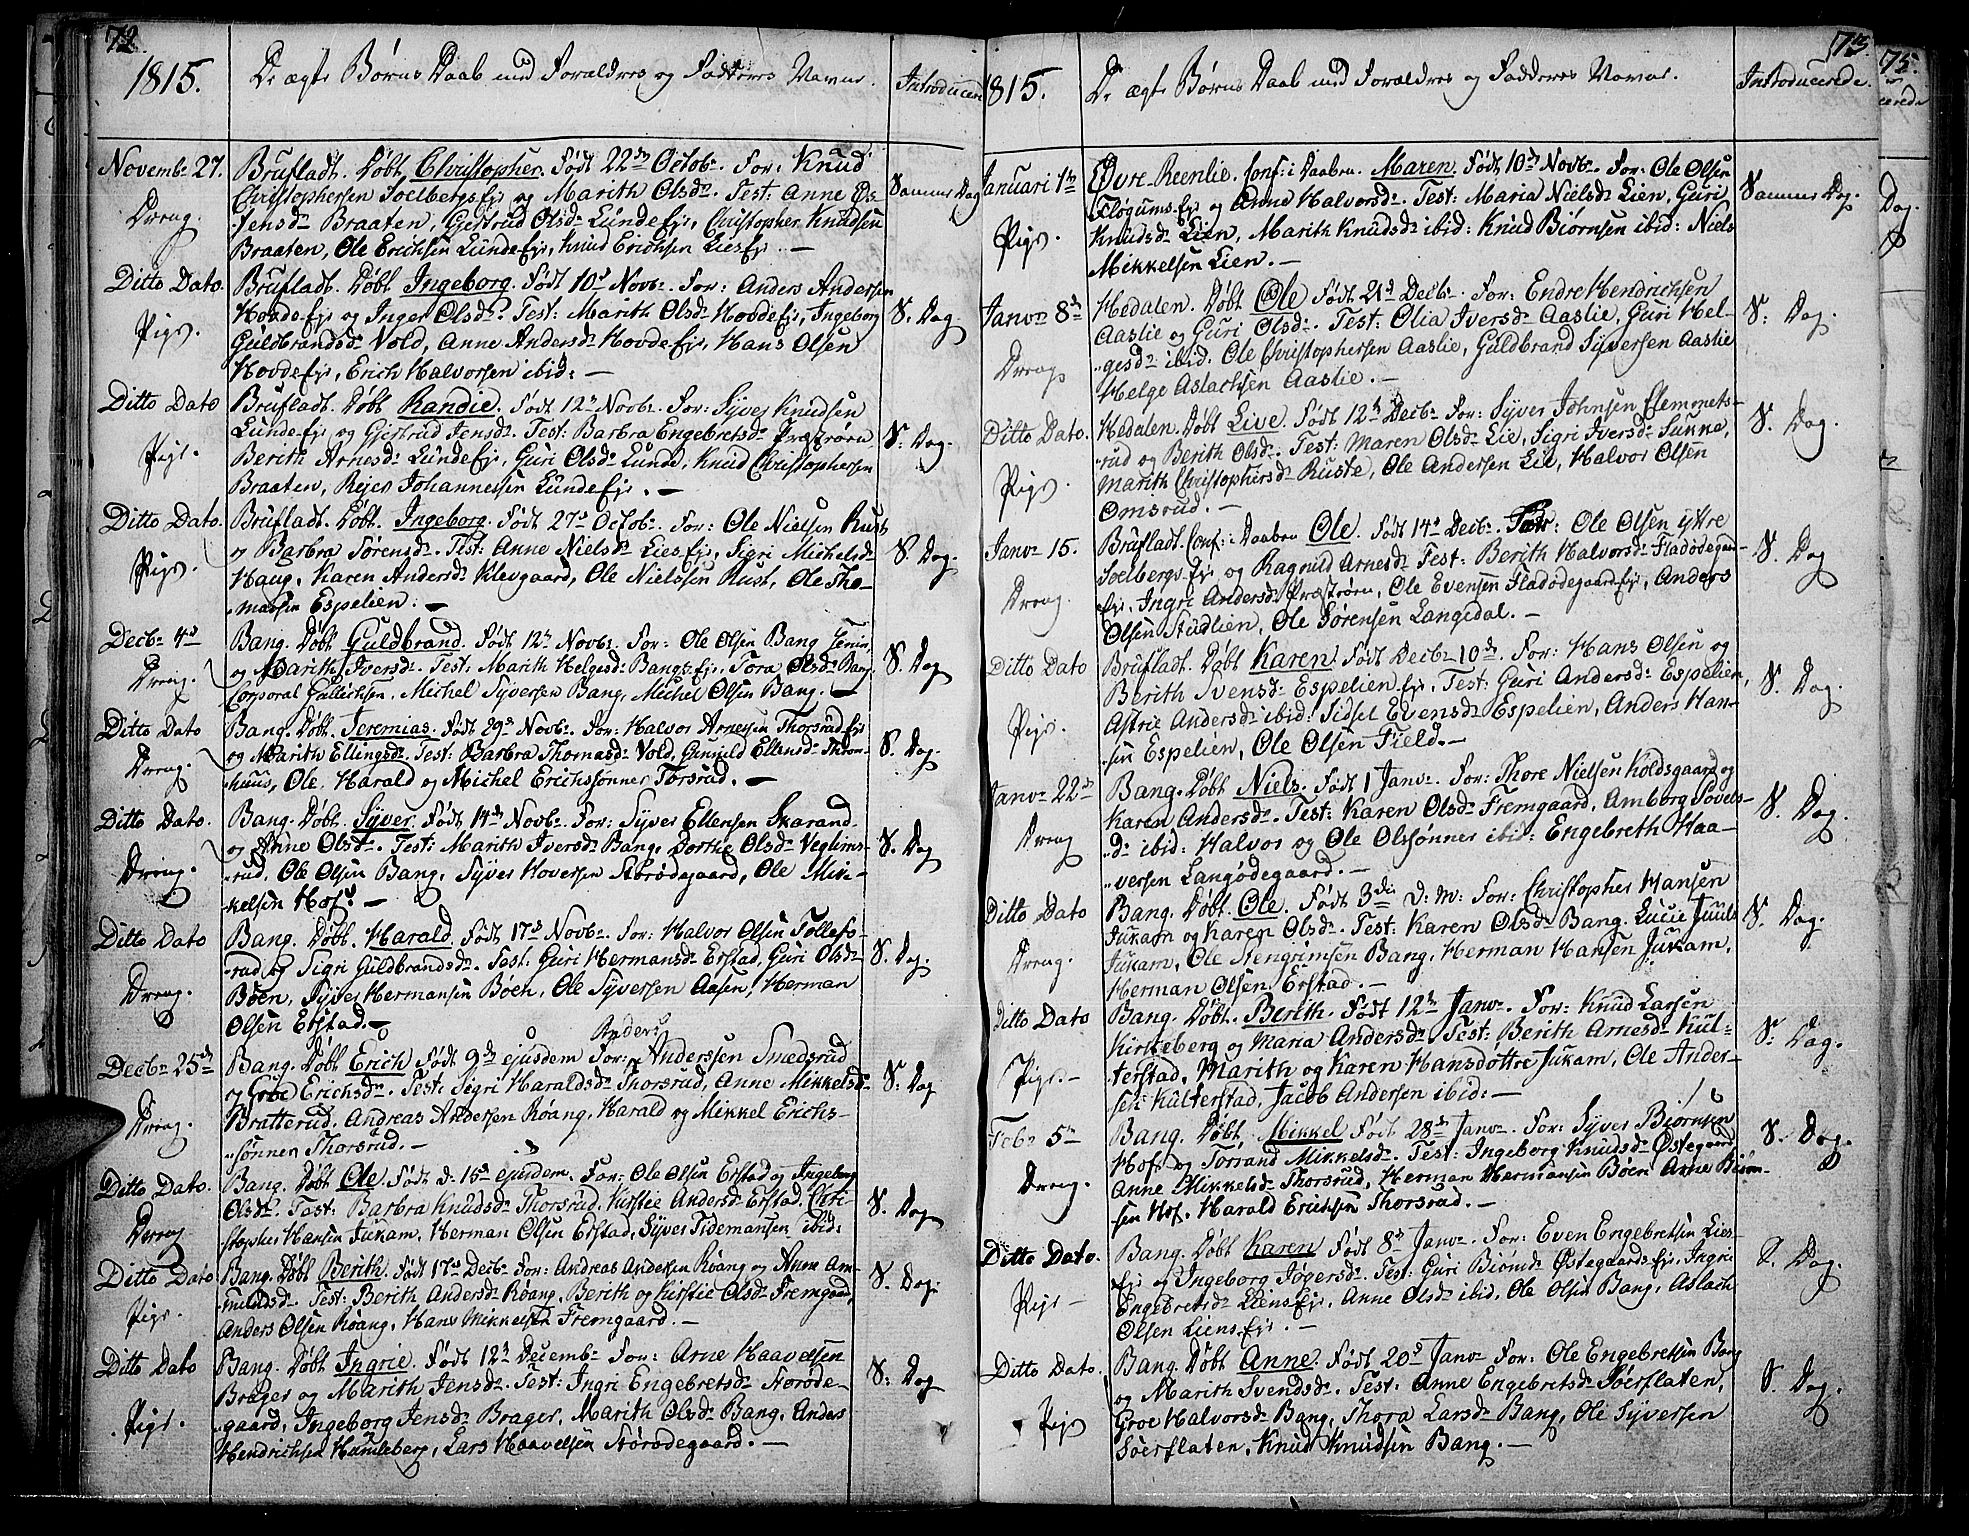 72.
1815.
De ægte Børns Daab med Forældres og Fadderes Navne.
Introducerede
Novembr 27.
Dreng.
Brufladt. Døbt Christopher. Født 22de Octobr. For: Knud
Christophersen Soelbergs Eje og Marith Olsdr. Test: Anne Ø
Jensdr Braaten, Gjertrud Olsdr LundeEje, Christopher Knudsen
Braaten, Ole Erichsen LundeEje, Knud Erichsen LiesEje. —
Samme Dag
Ditto Dato.
Pige.
Brufladt. Døbt Ingeborg. Født 10d Novbr. For: Anders Andersen
HovdeEje og Inger Olsdr. Test: Marith Olsdr HovdeEje, Ingeborg
Guldbrandsdr Vold, Anne Andersdr HovdeEje, Hans Olsen
HovdeEje, Erich Halvorsen ibid: —
S. Dag.
Ditto Dato
Pige.
Brufladt. Døbt Randie. Født 12te Novbr. For: Syver Knudsen
LundeEje og Gjertrud Jensdr. Test: Barbra Engebretsdr Præstrøen
Berith Arnesdr LundeEje, Guri Olsdr Lunde, Knud Christophersen
Braaten, Rejer Johannessen LundeEje. —
S. Dag.
Ditto Dato
Pige.
Brufladt. Døbt. Ingeborg. Født 27d Octobr. For: Ole Nielsen Rust
og Barbra Sørensdr. Test: Anne Nielsdr LiesEje, Sigri Michelsdr
Haug, Karen Andersdr Klevgaard, Ole Nielssen Rust, Ole Tho-
masen Espelien. —
S. Dag.
Decbr 4d
Dreng.
Bang. Døbt Guldbrand. Født 12te Novbr. For: Ole Olsen Bang
og Marith Iversdr. Test. Marith Helgesdr BangsEje, Tora Olsdr Bang
Corporal Gullichsen, Michel Syversen Bang, Michel Olsen Bang. —
S. Dag
Ditto Dato
Dreng.
Bang. Døbt. Jeremias. Født 29d Novbr. For: Halvor Arnesen ThorsrudEje
og Marith Ellingsdr. Test: Barbra Thomasdr Vold, Gunild Ellensdr Thron-
huus, Ole, Harald og Michel Erichssønner Torsrud. —
S. Dag.
Ditto Dato.
Dreng.
Bang. Døbt. Syver. Født 14de Novbr. For: Syver Ellensen Skarand.
og Anne Olsdr. Test: Marith Iversdr Bang, Dorthe Olsdr Veglims-
rud, Ole Olsen Bang, Syver Hoversen Storødegaard, Ole Mik-
kelsen Hof. —
S. Dag
Ditto Dato
Dreng.
Bang. Døbt. Harald. Født 17d Novbr. For: Halvor Olsen Tollefs-
rud og Sigri Guldbrandsdr. Test: Guri Hermansdr Erstad, Guri Olsdr
Bøen, Syver Hermansen Bøen, Ole Syversen Aasen, Herman
Olsen Erstad. —
S. Dag.
Decbr 25de
Dreng.
Anders
Bang. Døbt Erich Født 9de ejusdem For: Anderssen Smedsrud
og Groe Erichsdr. Test: Sigri Haraldsdr Thorsrud, Anne Mikkelsdr
Bratterud, Andreas Andersen Røang, Harald og Mikkel Erichs-
sønner Thorsrud. —
S. Dag
Ditto Dato.
Dreng
Bang. Døbt Ole. Født d. 15d ejusdem. For: Ole Olsen Erstad og Ingeborg
Olsdr. Test: Barbra Knudsdr Thorsrud, Kirstie Andersdr Erstad, Chri-
stopher Hansen Jukam, Herman Olsen Erstad, Syver Tidemansen ibid:
S. Dag
Ditto Dato
Pige.
Bang. Døbt Berith. Født 17d Decbr. For: Andreas Andersen Røang og Anne Am-
mundsdr. Test: Berith Andersdr Røang, Berith og Kirstie Olsdr Fremgaard,
Anders Olsen Røang, Hans Mikkelsen Fremgaard. —
S. Dag.
Ditto Dato
Pige.
Bang. Døbt Ingrie. Født 12te Decembr. For: Arne Haavelsen
Brager og Marith Jensdr. Test: Ingri Engebretsdr Storøde-
gaard, Ingeborg Jensdr Brager, Marith Olsdr Bang, Anders
Hendrichsen Humleberg, Lars Haavelsen Storødegaard. —
S. Dag
73.
1815.
De ægte Børns Daab med Forældres og Fadderes Navne.
Introducerede.
Januari 1te
Pige.
Øvre-Reenlie. Conf: i Daaben. Maren. Født 10de Novbr. For: Ole Olsen
FløgumsEje og Anne Halvorsdr. Test: Maria Nielsdr Lien, Guri
Knudsdr Lien, Marith Knudsdr ibid: Knud Biørnsen ibid: Niels
Mikkelsen Lien. —
Samme Dag.
Janvr 8de
Dreng
Hedalen. Døbt Ole Født 21d Decbr. For: Endre Hendrichsen
Aaslie og Guri Olsdr. Test: Olia Iversdr Aaslie, Guri Hel-
gesdr ibid. Ole Christophersen Aaslie, Guldbrand Syversen Aaslie
Helge Aslachsen Aaslie. —
S: Dag.
Ditto Dato.
Pige.
Hedalen. Døbt Live. Født 12te Decbr. For: Syver Johnsen Clemmets-
rud og Berith Olsdr. Test: Maren Olsdr Lie, Sigri Iversdr Sunne,
Marith Christophersdr Ruste, Ole Andersen Lie, Halvor Olsen
Omsrud. —
S. Dag.
Janvr 15.
Dreng.
Brufladt. Conf: i Daaben Ole. Født 14d Decbr. For: Ole Olsen yttre
SoelbergsEje og Ragnild Arnesdr Test: Berith Halvorsdr Fladødegaar-
Eje, Ingri Andersdr Præstrøen, Ole Evensen FladødegaardEje, Anders
Olsen Studlien, Ole Sørensen Langedal. —
S. Dag
Ditto Dato
Pige.
Brufladt. Døbt Karen Født Decbr 10de. For: Hans Olsen og
Berith Svensdr EspelienEje, Test: Guri Andersdr Espelien,
Astrie Andersdr ibid: Sidsel Evensdr Espelien, Anders Han-
sen Espelien, Ole Olsen Field. —
S. Dag.
Janvr 22de
Dreng
Bang. Døbt Niels. Født 1 Janvr. For: Thore Nielsen Koldsgaard og
Karen Andersdr. Test: Karen Olsdr Fremgaard, Amborg Povels-
dr ibid: Halvor og Ole Olssønner ibid: Engebreth Haa-
versen Langødegaard. —
S. Dag.
Ditto Dato
Dreng.
Bang. Døbt. Ole. Født 3die D: M: For: Christopher Hansen
Jukam og Karen Olsdr. Test: Karen Olsdr Bang, Lucie Juuls
Jukam, Ole Stengrimsen Bang, Herman Hansen Jukam,
Herman Olsen Erstad. —
S. Dag.
Ditto Dato
Pige. —
Bang. Døbt. Berith. Født 12te Janvr. For: Knud Larsen
Kirkeberg og Maria Andersdr Test: Berith Arnesdr Kul-
terstad, Marith og Karen Hansdøttre Jukam, Ole Ander-
sen Kulterstad, Jacob Andersen ibid: —
S: Dag.
Febr 5te
Dreng.
Bang. Døbt, Mikkel Født 28de Janvr. For: Syver Biørnsen
Hof og Torrand Mikkelsdr. Test: Ingeborg Knudsdr Østegaard
Anne Mikkelsdr Thorsrud, Herman Hermansen Bøen, Arne Biørn-
sen Hof, Harald Erichsen Thorsrud. —
S. Dag.
Ditto Dato.
Pige —
Bang. Døbt Karen Født 8d Janvr. For: Even Engebretsen Lies-
Eje og Ingeborg Jøgersdr. Test: Guri Biørnsdr ØstegaardsEje, Ingrie
Engebretsdr LiensEje, Anne Olsdr ibid, Ole Olsen Bang, Aslach
Olsen LiensEje. —
S. Dag.
Ditto Dato.
Pige
Bang. Døbt Anne. Født 20d Janvr For: Ole Engebretsen Bang
og Marith Svendsdr. Test: Anne Engebretsdr Søerflaten,
Groe Halvorsdr Bang, Thora Larsdr Bang, Ole Syversen
Søerflaten, Knud Knudsen Bang. —
S. Dag.
75.
cerede
Dag.